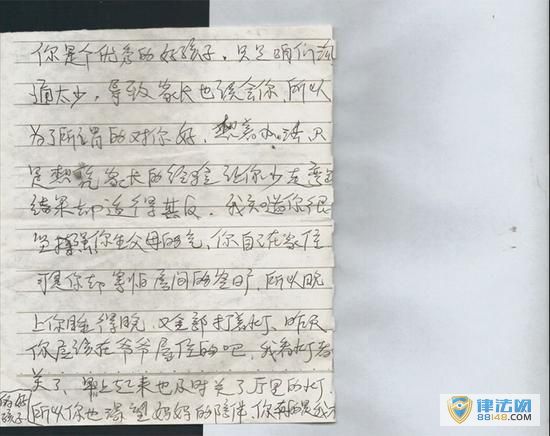 你是个优秀的好孩子，只是咱们沟
通太少，导致家长也误会你，所以
为了所谓的对你好，想尽办法只
是想凭家长的经验让你少走弯路
结果却适得其反，我知道你很
坚强你生父母的气，你自己在家住
可是你却害怕房间的空旷，所以晚
上你睡得晚，又全部打着灯，昨天
你应该在爷爷屋住的吧，我看灯都
关了，早上起来也及时关了厅里的灯
的好孩子
所以你也渴望妈妈的陪伴，你
律法网
88148.com